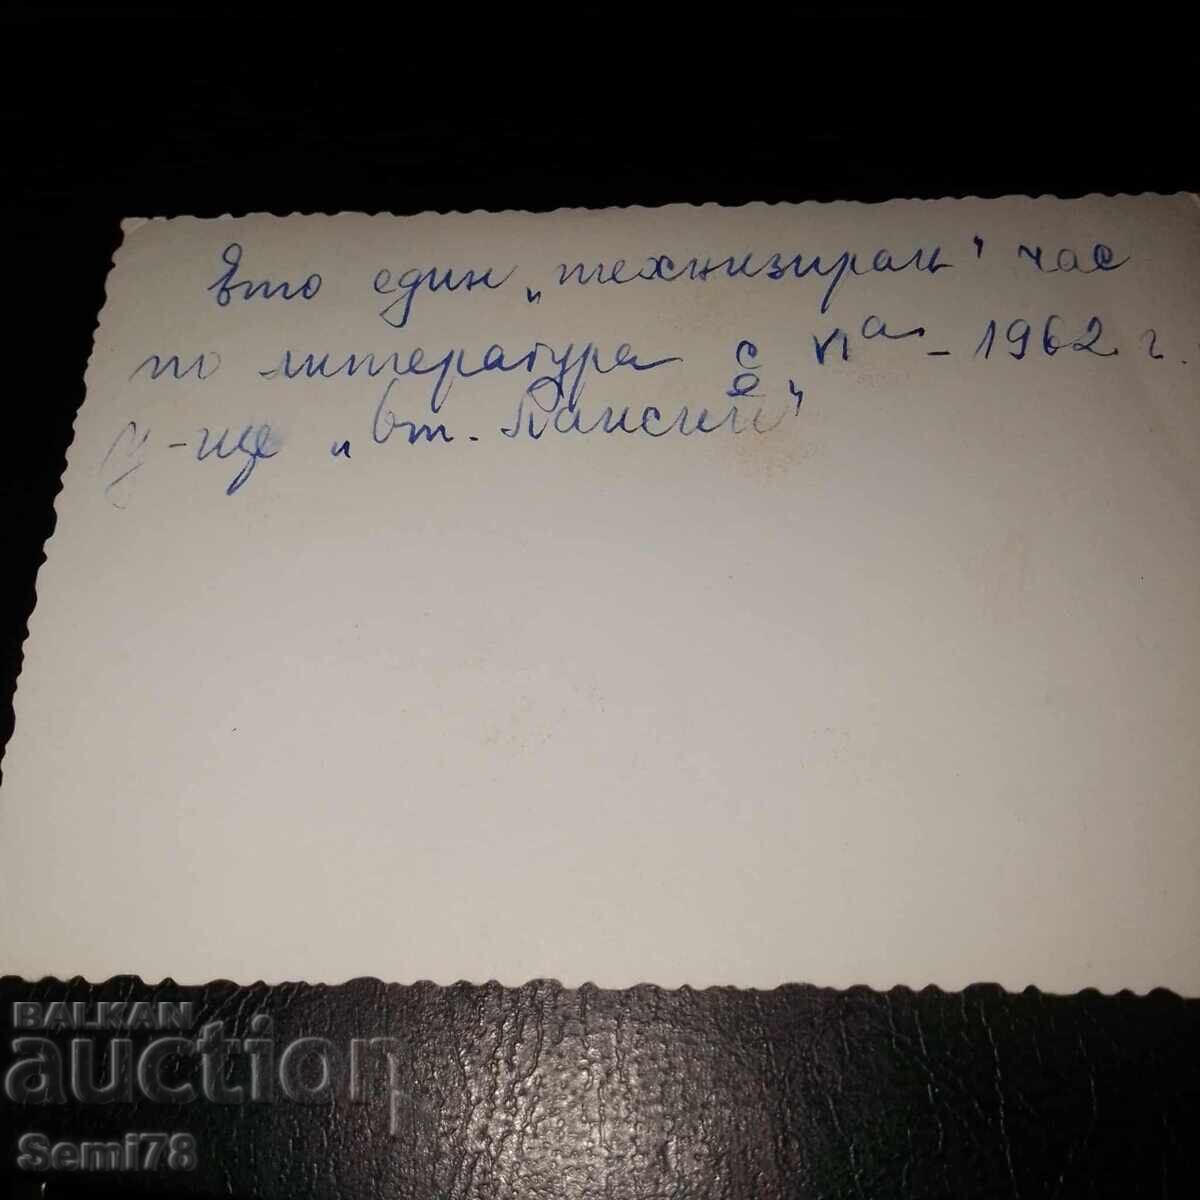 Ето един „технизиран" час
по литература с VIª - 1962 г.
у-ще „Вт. Паисий"
BALKAN
auction
Semi78